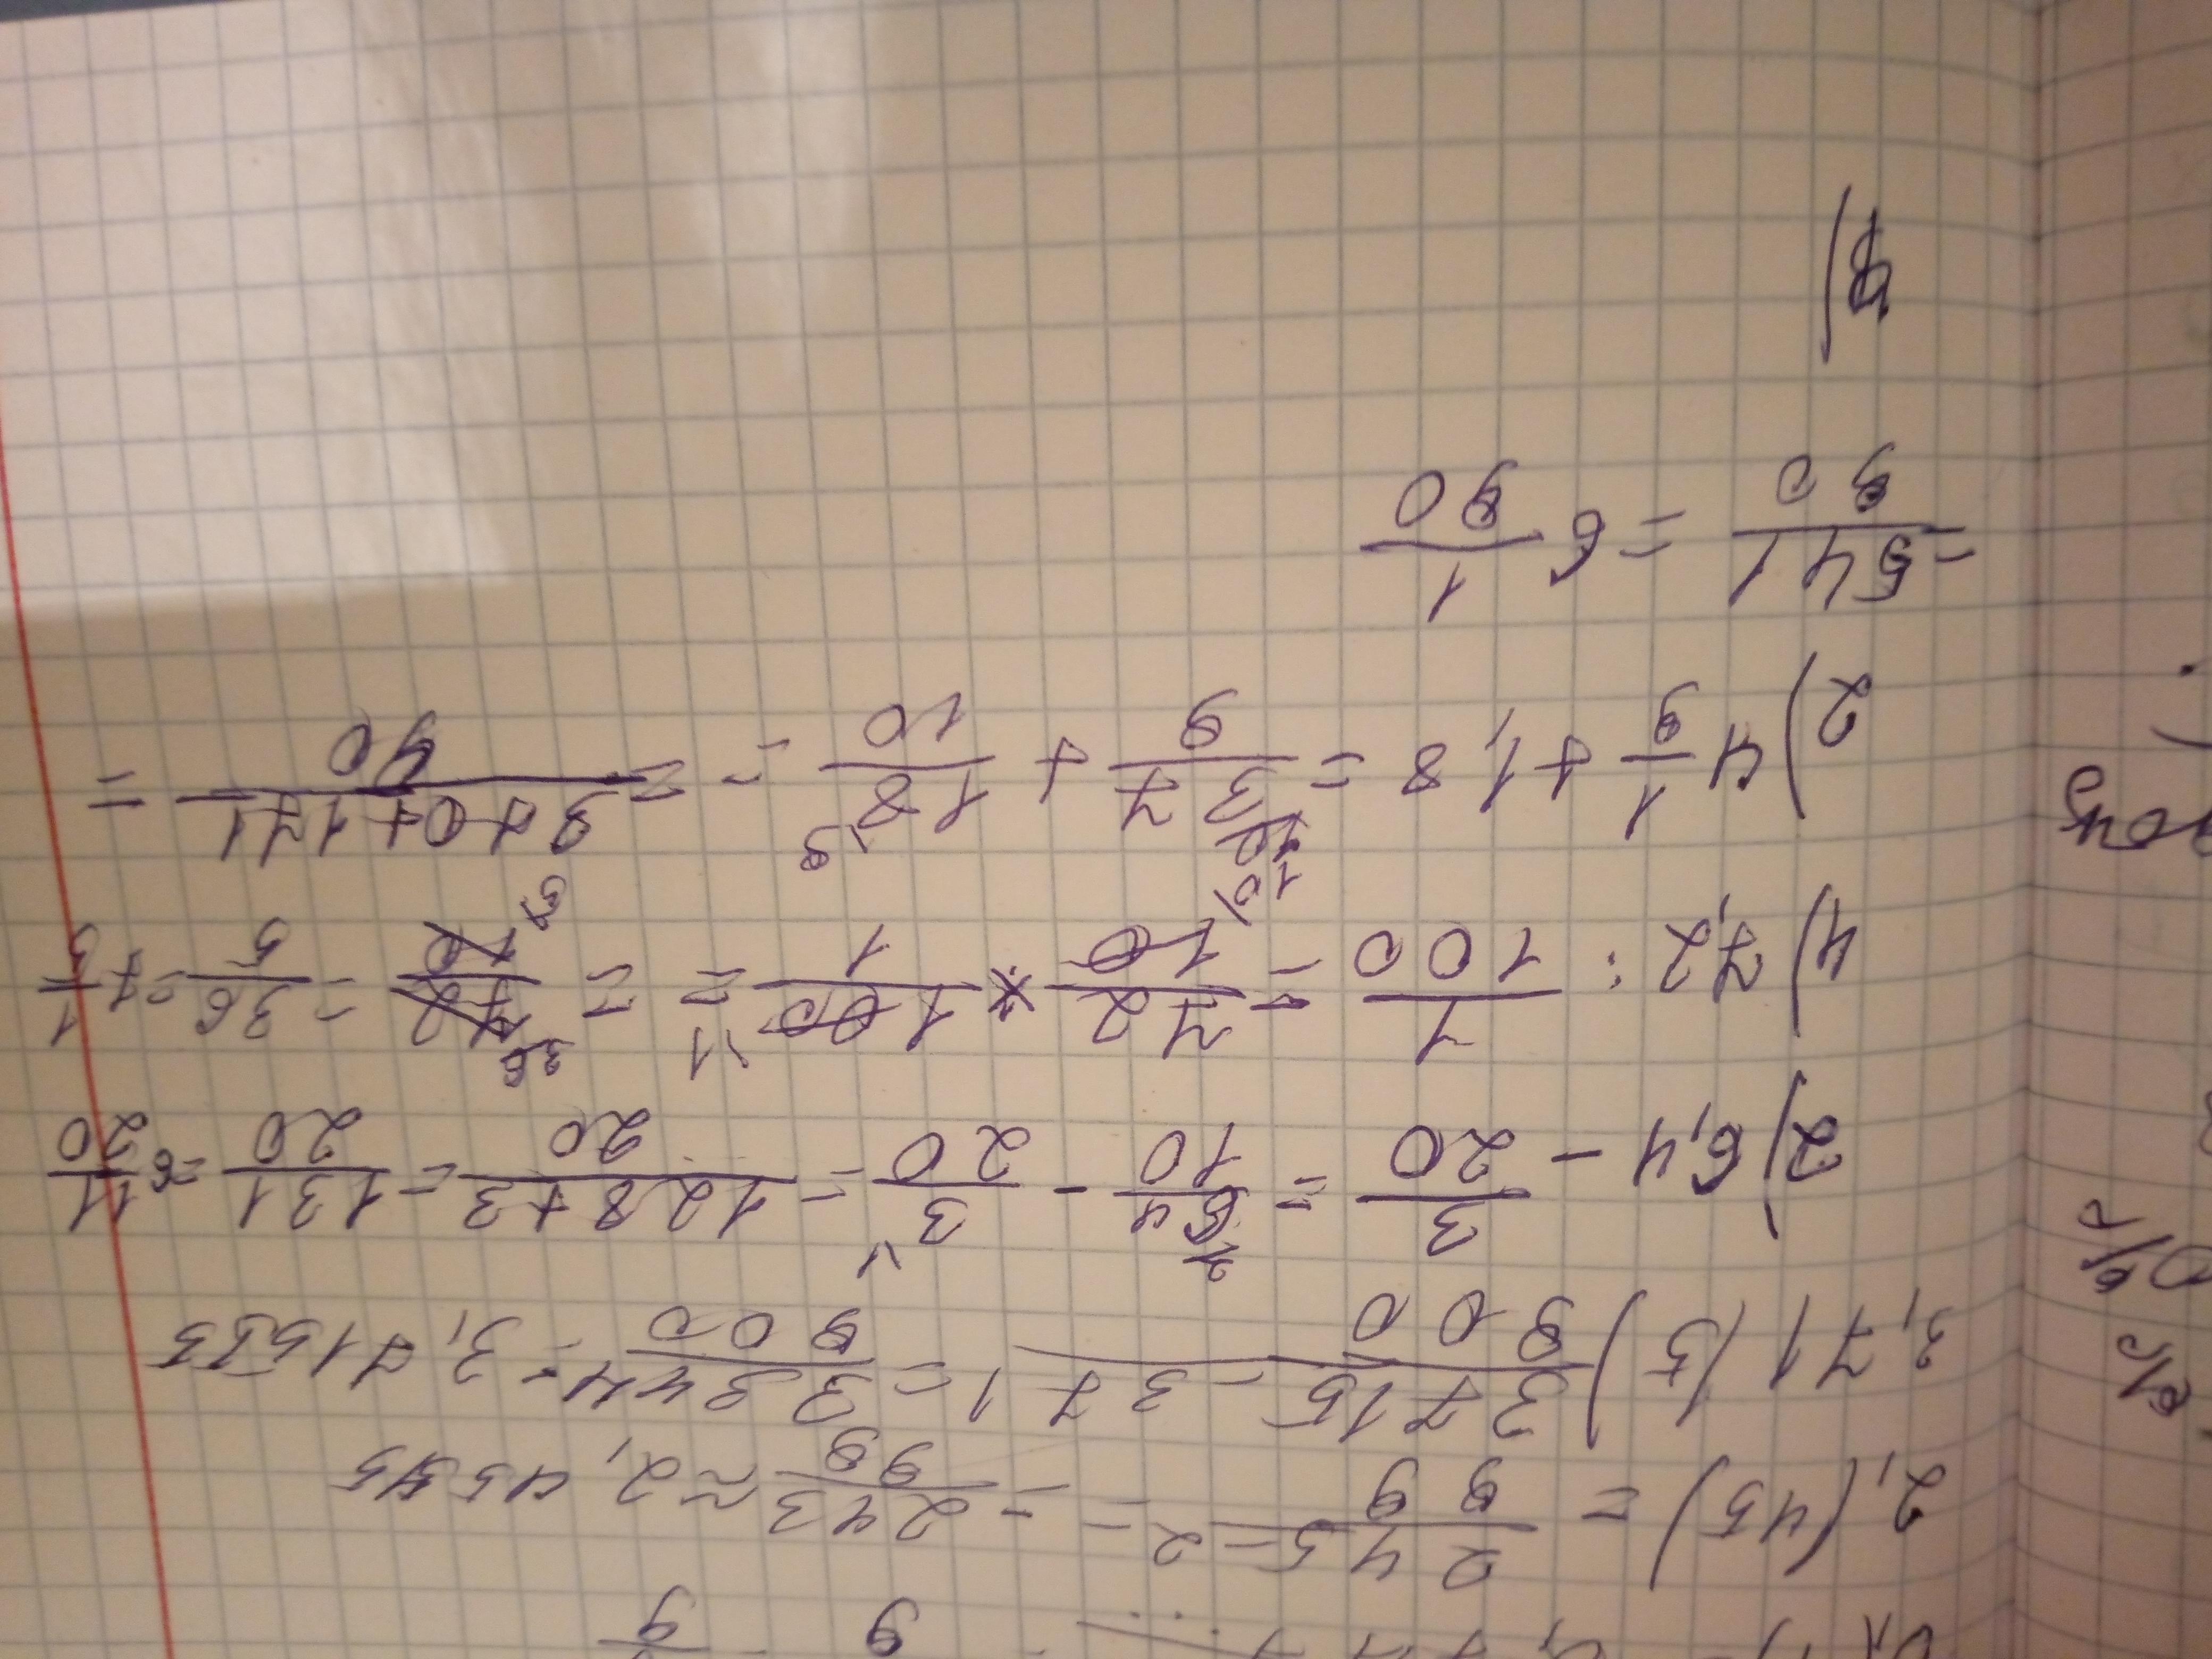 2,(45) = 245-2/99 = = 243/99 ≈ 2,4545
3,71(5) 3715-371/900 = 3344/900 = 3,71555
2) 6,4 - 3/20 = 64/10 - 3/20 = 128+3/20 = 131/20 = 6 11/20
4) 7,2 : 1/100 = 72/10 * 100/1 = = 72/10 = 36/5 = 7 1/5
2) 4 1/9 + 1,8 = 37/9 + 18/10 = = 370+171/90 =
= 541/90 = 6 1/90